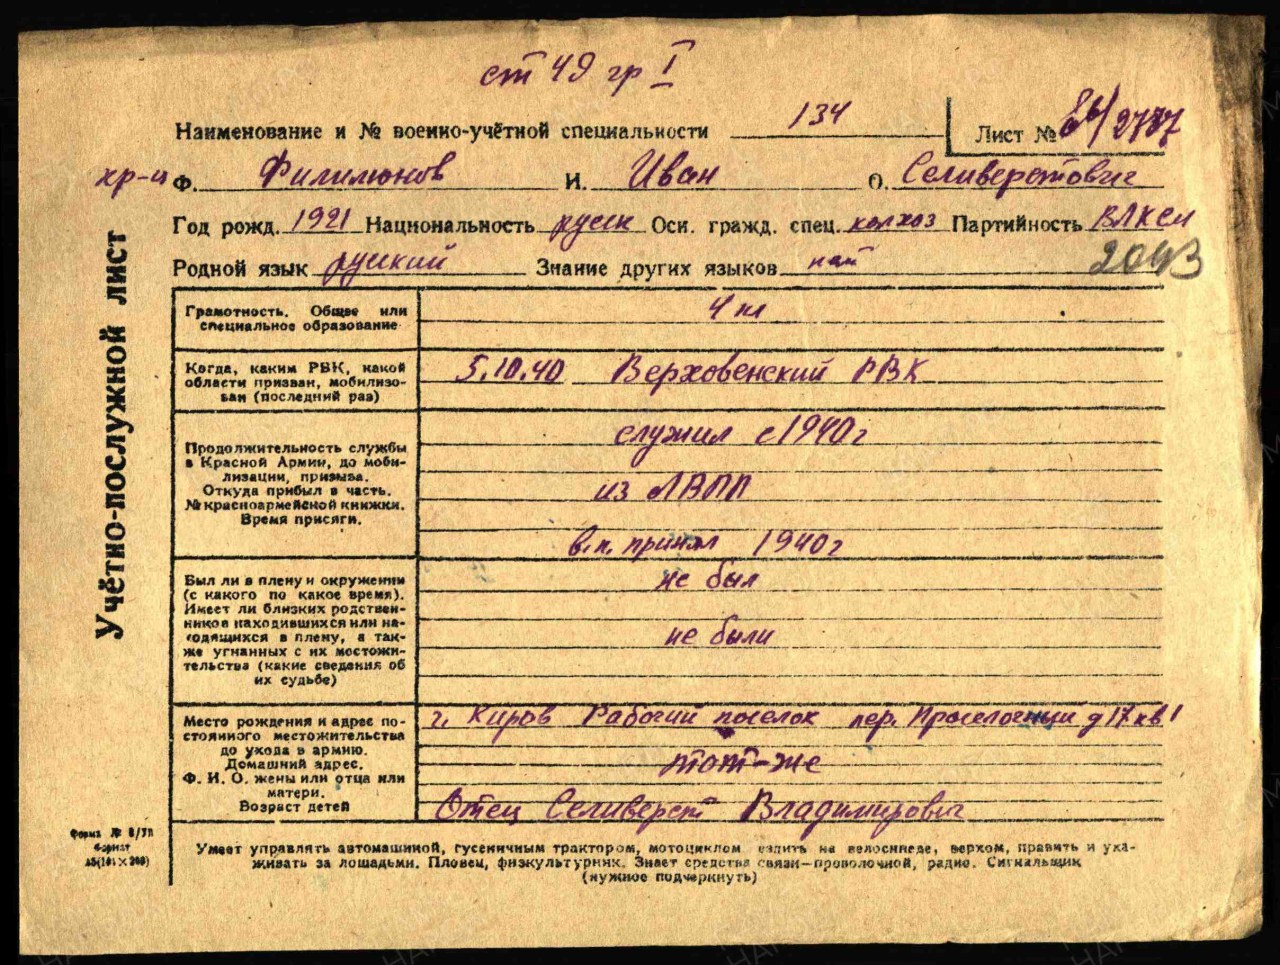 ст 49 гр I
Наименование и № военно-учётной специальности 134 Лист №
хр-ц Ф. Филимонов И. Иван О. Селиверстович
Год рожд. 1921 Национальность русск Осн. гражд. спец. колхоз Партийность ВЛКСМ
Родной язык русский Знание других языков 2043
Учётно-послужной лист
Грамотность. Общее или
специальное образование
4 кл
Когда, каким РВК, какой
области призван, мобилизо-
ван (последний раз)
5.10.40 Верховенский РВК
Продолжительность службы
в Красной Армии, до моби-
лизации, призыва.
Откуда прибыл в часть.
№ красноармейской книжки.
Время присяги.
служил с 1940 г
из ЛВПП
в.п. принял 1940 г
Был ли в плену и окружении
(с какого по какое время).
Имеет ли близких родствен-
ников находившихся или на-
ходящихся в плену, а так-
же угнанных с их местожи-
тельства (какие сведения об
их судьбе)
не был
не были
Место рождения и адрес по-
стоянного местожительства
до ухода в армию.
Домашний адрес.
Ф. И. О. жены или отца или
матери.
Возраст детей
г. Киров Рабочий поселок пер. Проселочный д 17 кв 1
тот-же
Отец Селиверст Владимирович
Форма № 8/УП
Формат
Умеет управлять автомашиной, гусеничным трактором, мотоциклом ездить на велосипеде, верхом, править и уха-
живать за лошадьми. Пловец, физкультурник. Знает средства связи-проволочной, радио. Сигнальщик
(нужное подчеркнуть)